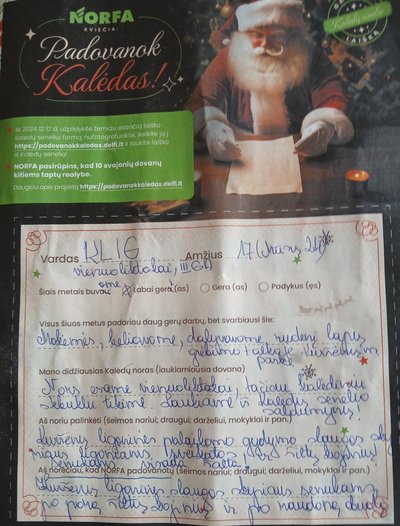 NORFA
KVIEČIA!
Padovanok
Kalėdas!
Kalėdų seneli
LAIŠKA
Iki 2024 12 13 d. užpildykite žemiau esančią laiško
Kalėdų seneliui formą, nufotografuokite, įkelkite ją į
https://padovanokkaledas.delfi.lt ir laukite laiško
iš Kalėdų Senelio!
NORFA pasirūpins, kad 10 svajonių dovanų
kitiems taptų realybe.
Daugiau apie projektą https://padovanokkaledas.delfi.lt
Vardas KLIG Amžius 17
vienuoliktokai, III G
Šiais metais buvau: Labai gera(as) Gera (as) Padykus (ęs)
Visus šiuos metus padariau daug gerų darbų, bet svarbiausi šie:
Mokėmės, keliavome, dalyvavome rudenį lapų
grėbimo talkoje Kuršėnų m.
parke
Mano didžiausias Kalėdų noras (laukiamiausia dovana)
Nors esame vienuoliktokai, tačiau kalėdiniu
seneliu tikime. Laukiame iš Kalėdų senelio
saldumynų!
Aš noriu palinkėti (šeimos nariui; draugui; darželiui, mokyklai ir pan.)
Kuršėnų ligoninės palaikomo gydymo slaugos sk.
Aš norėčiau, kad NORFA padovanotų (šeimos nariui; draugui; darželiui, mokyklai ir pan.)
Kuršėnų ligoninės slaugos skyriaus senukams
po porą šiltų kojinių ir po raudoną